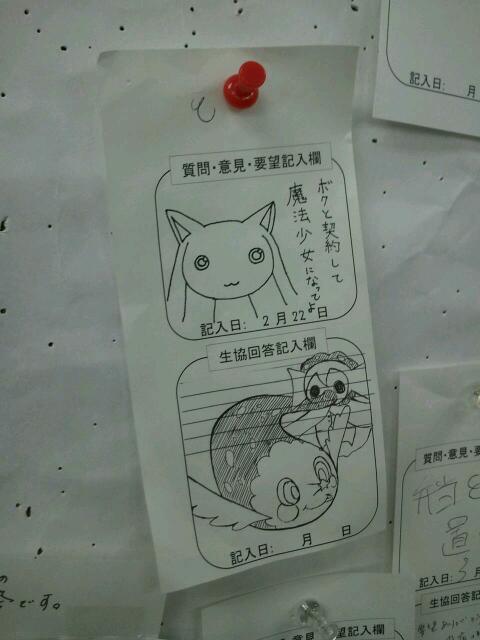 質問・意見・要望記入欄
ボクと契約して
魔法少女になってよ
記入日: 2月22日
生協回答記入欄
記入日: 月 日
記入日: 月
質問・意見・要
記入日: 3月
生協回答記入
です。
意見・要望記入欄